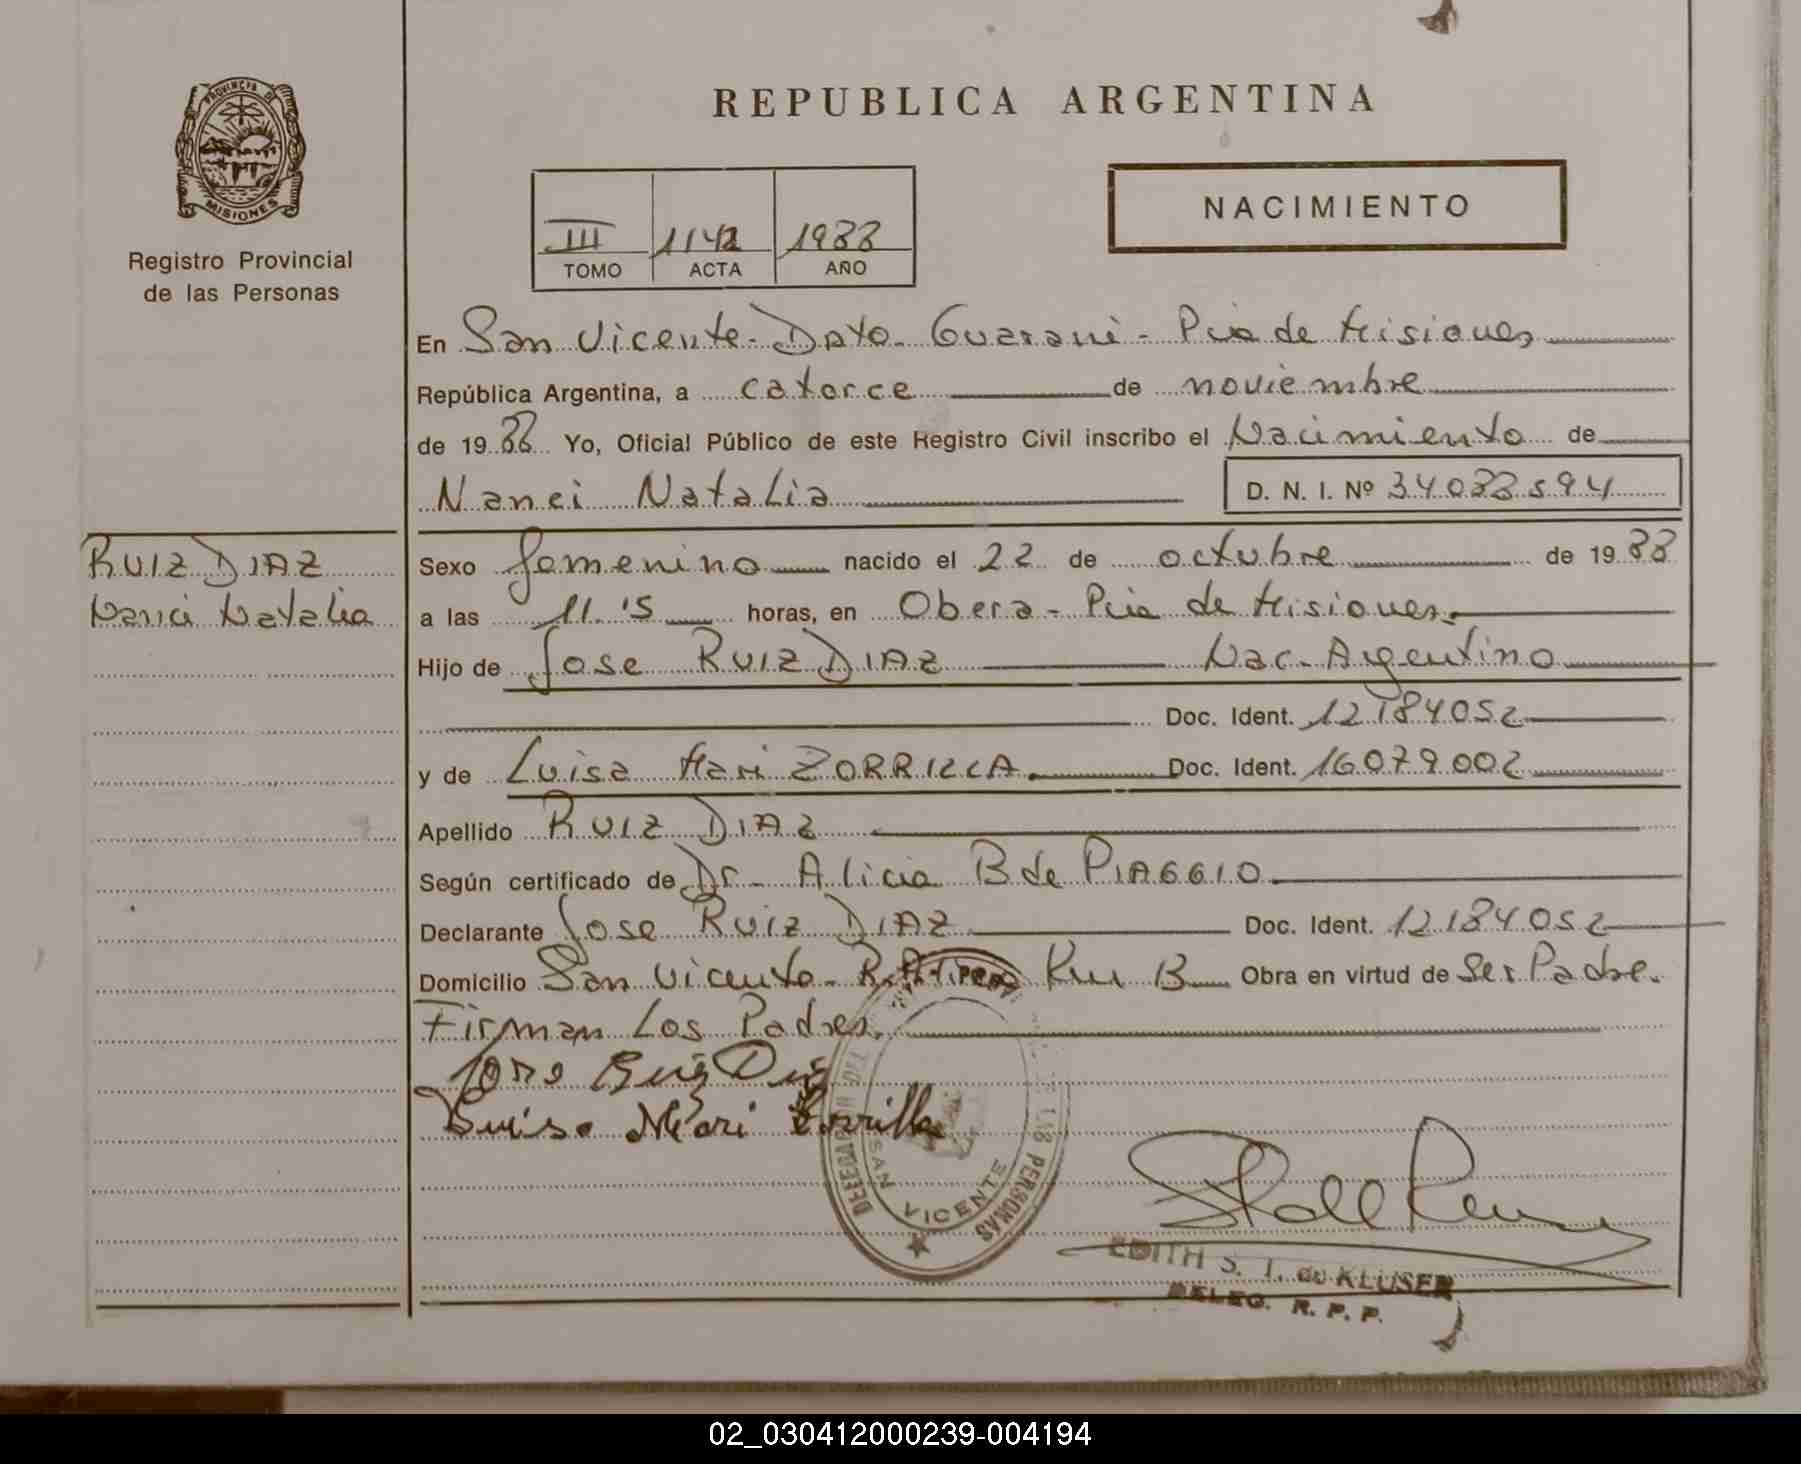 PROVINCIA DE
MISIONES
Registro Provincial
de las Personas
REPUBLICA ARGENTINA
III 1142 1988
TOMO ACTA AÑO
NACIMIENTO
En San Vicente - Dpto. Guarani - Pcia de Misiones
República Argentina, a catorce de noviembre
de 1988 Yo, Oficial Público de este Registro Civil inscribo el Nacimiento de
Nanci Natalia D. N. I. Nº 34088594
RUIZ DIAZ
Nanci Natalia
Sexo femenino nacido el 22 de octubre de 1988
a las 11.15 horas, en Obera - Pcia de Misiones.
Hijo de Jose RUIZ DIAZ Nac. Argentino
Doc. Ident. 12184052
y de Luisa Mari ZORRILLA Doc. Ident. 16079002
Apellido RUIZ DIAZ
Según certificado de Dr. Alicia B de PIAGGIO
Declarante Jose Ruiz DIAZ Doc. Ident. 12184052
Domicilio San Vicente - Km B Obra en virtud de Ser Padre.
Firman Los Padres.
Jose Ruiz Diaz
Luisa Mari Zorrilla
PERSONAS
SAN VICENTE
EDITH S. T. de KLUSER
DELEG. R. P. P.
02_030412000239-004194